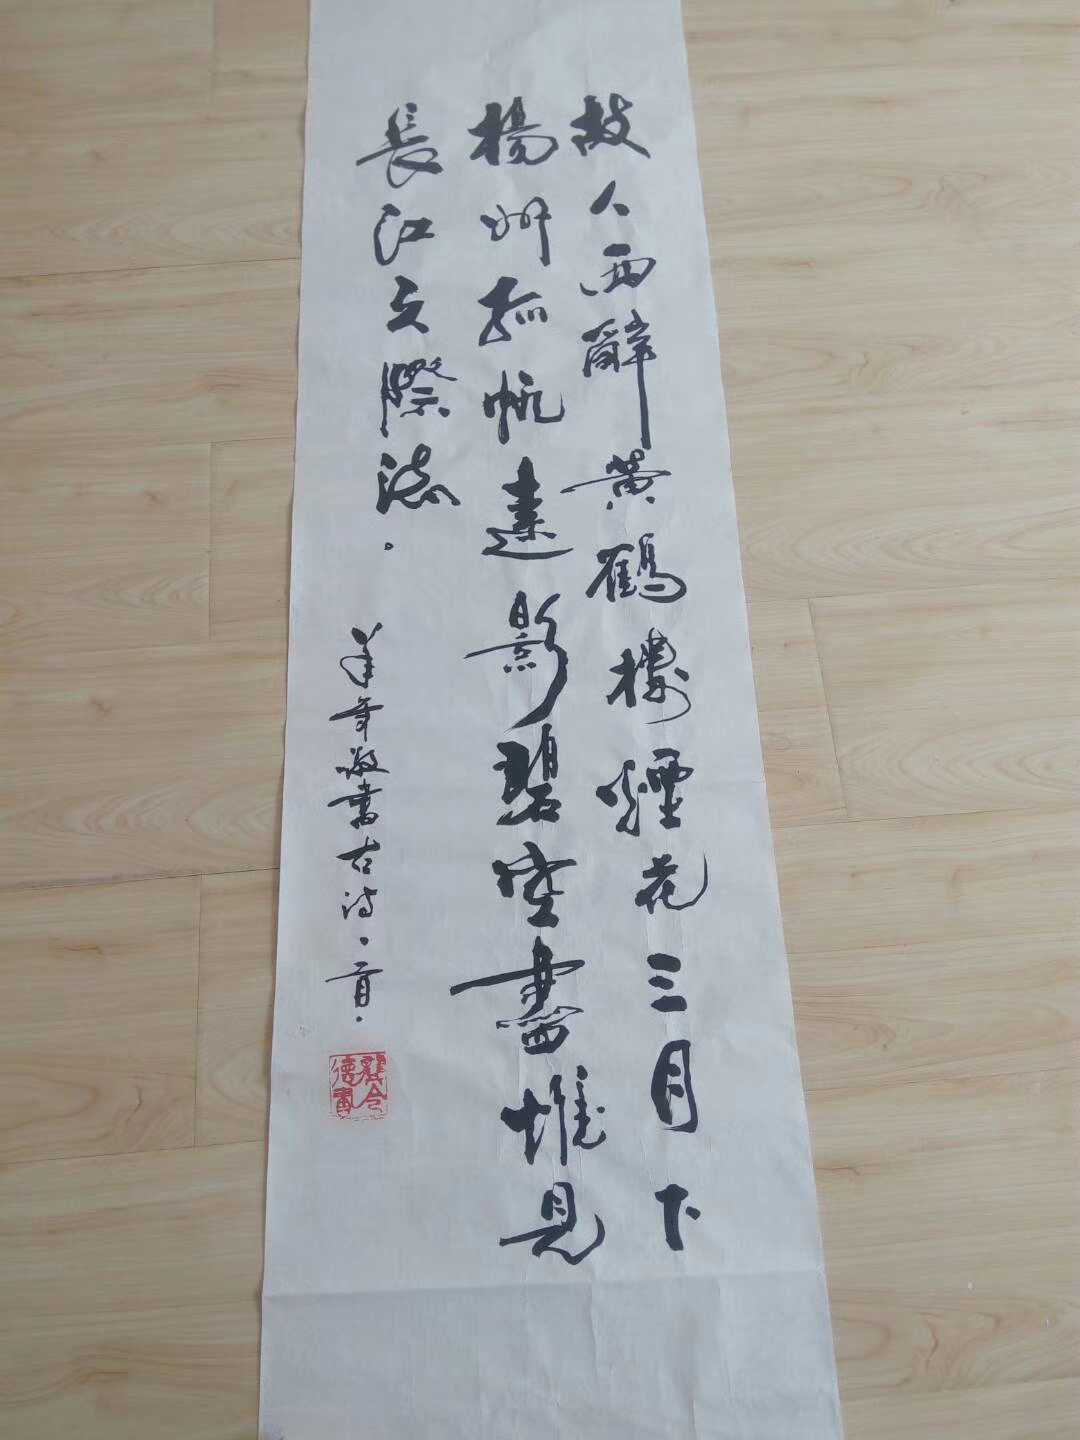 故人西辭黃鶴樓煙花三月下
楊州孤帆遠影碧空盡惟見
長江天際流
羊年敬書古詩一首